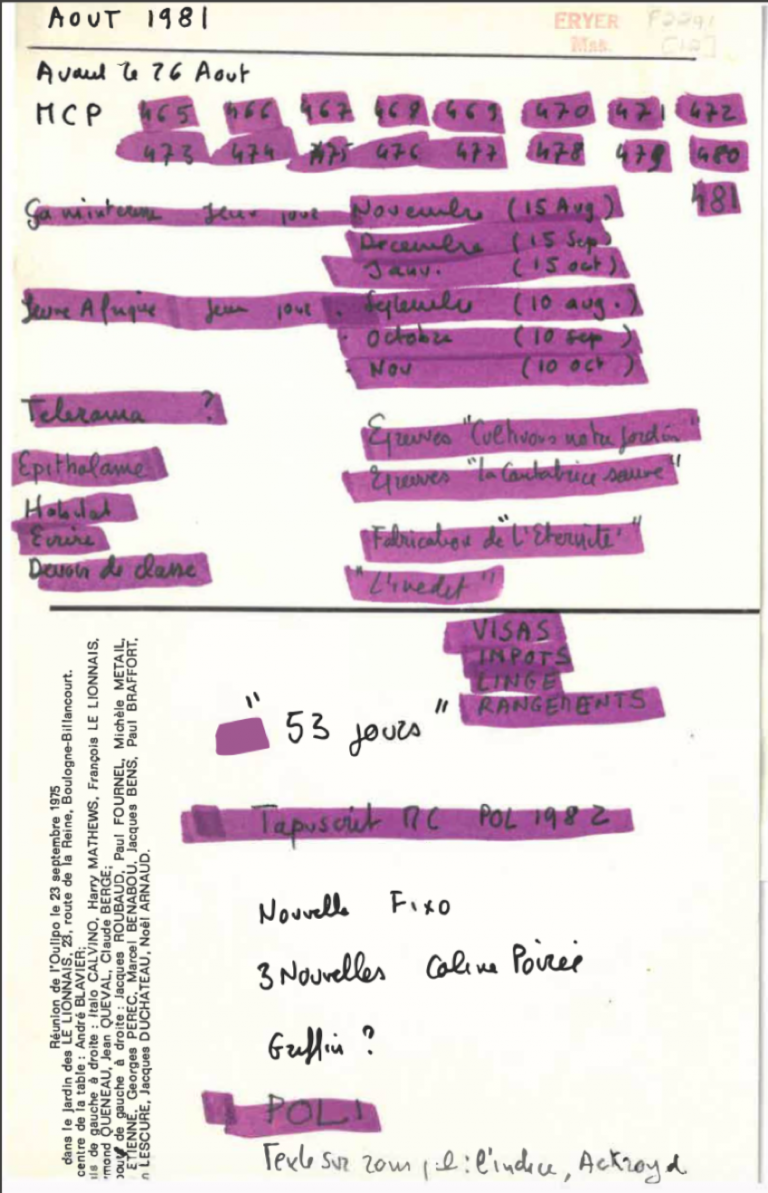 AOUT 1981
ERYER
Mss.
Avant le 26 Aout
MCP 465 466 467 468 469 470 471 472
473 474 475 476 477 478 479 480
481
Ça m'intéresse Jeux pour Novembre (15 Aug)
Decembre (15 Sep)
Janv. (15 oct)
Jeune Afrique Jeux pour Septembre (10 aug.)
Octobre (10 sep)
Nov (10 oct)
Telerama ?
Epreuves "Cultivons notre jardin"
Epithalame
Epreuves "la Cantatrice sauve"
Habitat
Ecrire
Fabrication de "L'Eternité"
Devoir de classe
"L'Inedit"
VISAS
IMPOTS
LINGE
RANGEMENTS
"53 jours"
Tapuscrit MC POL 1982
Nouvelle Fixo
3 Nouvelles Caline Poirée
Griffin ?
POL 1
Texte sur l'indice, Ackroyd
Réunion de l'Oulipo le 23 septembre 1975
dans le jardin des LE LIONNAIS, 23, route de la Reine, Boulogne-Billancourt.
centre de la table : André BLAVIER;
is de gauche à droite : Italo CALVINO, Harry MATHEWS, François LE LIONNAIS,
mond QUENEAU, Jean QUEVAL, Claude BERGE;
bout de gauche à droite : Jacques ROUBAUD, Paul FOURNEL, Michèle METAIL,
ETIENNE, Georges PEREC, Marcel BENABOU, Jacques BENS, Paul BRAFFORT,
n LESCURE, Jacques DUCHATEAU, Noël ARNAUD.